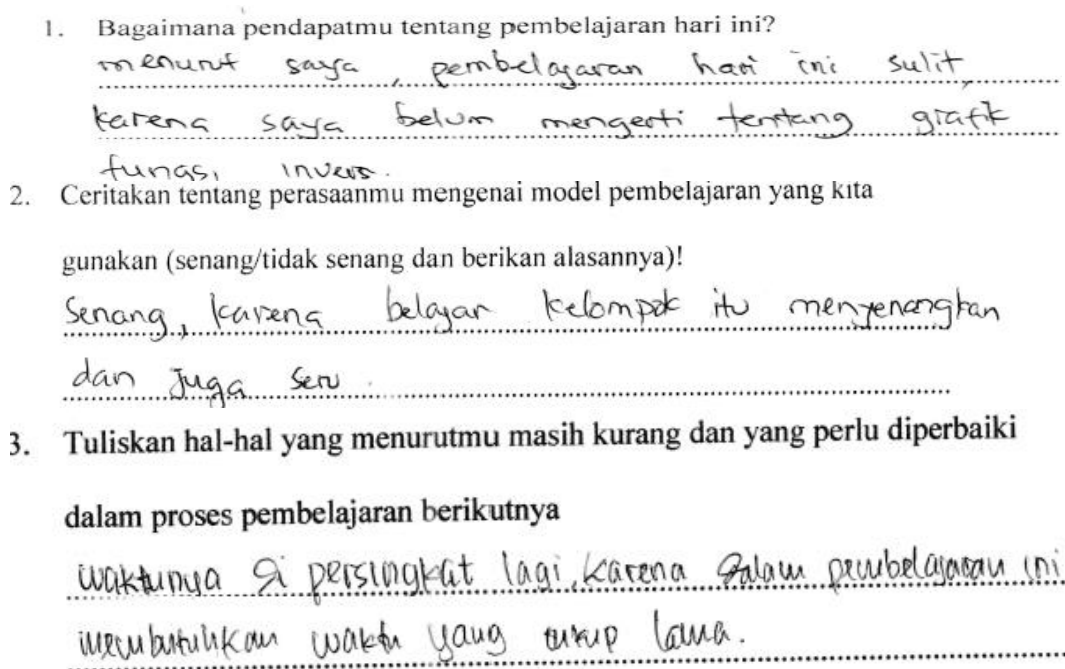 1. Bagaimana pendapatmu tentang pembelajaran hari ini?
menurut saya, pembelajaran hari ini sulit,
karena saya belum mengerti tentang grafik
fungsi invers.
2. Ceritakan tentang perasaanmu mengenai model pembelajaran yang kita
gunakan (senang/tidak senang dan berikan alasannya)!
Senang, karena belajar kelompok itu menyenangkan
dan juga seru.
3. Tuliskan hal-hal yang menurutmu masih kurang dan yang perlu diperbaiki
dalam proses pembelajaran berikutnya
waktunya di persingkat lagi, karena dalam pembelajaran ini
membutuhkan waktu yang cukup lama.